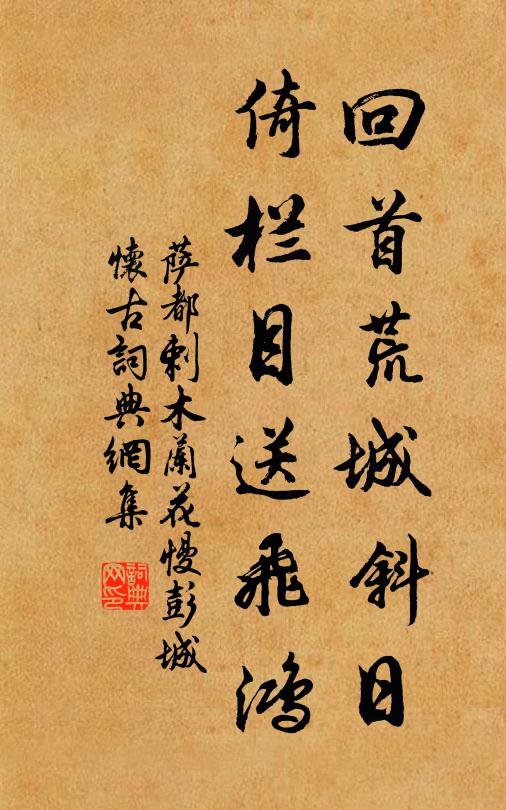 回首荒城斜日
倚栏目送飛鴻
萨都剌木蘭花慢彭城
懷古詞典網集
詞典网印